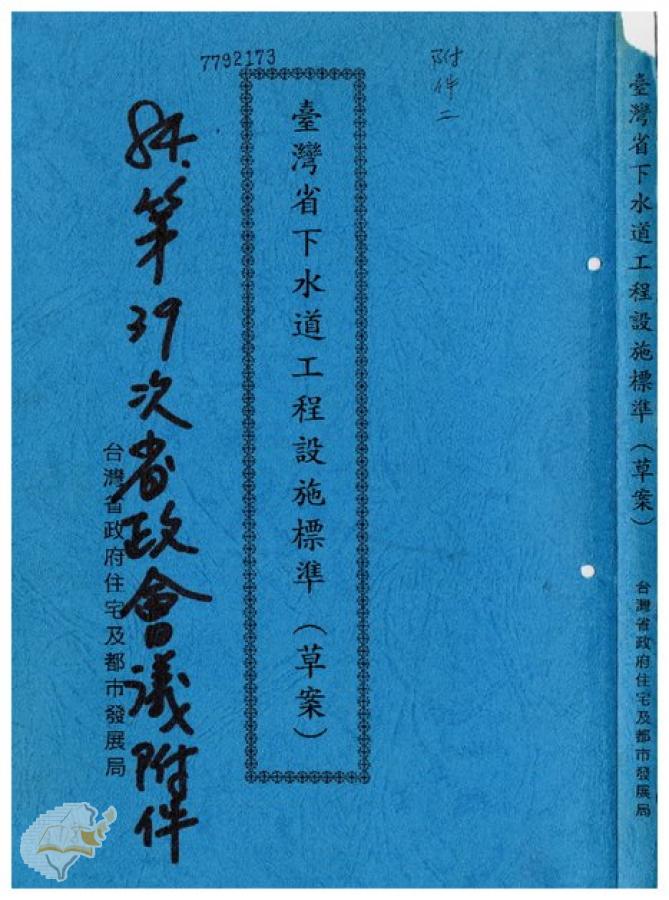 7792173
附件二
臺灣省下水道工程設施標準（草案）
84.第39次省政會議附件
台灣省政府住宅及都市發展局
臺灣省下水道工程設施標準（草案）
台灣省政府住宅及都市發展局